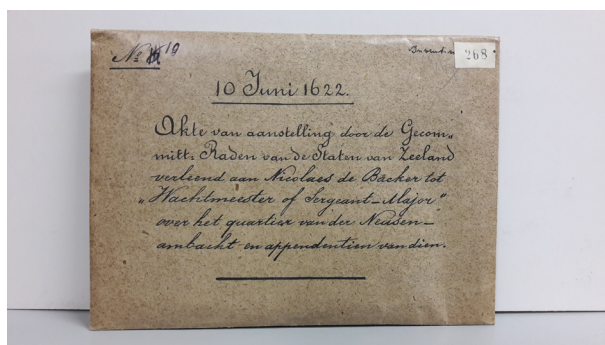 No 19
Inventaris
268
10 Juni 1622.
Akte van aanstelling door de Gecom„
mitt: Raden van de Staten van Zeeland
verleend aan Nicolaes de Backer tot
„Wachtmeester of Sergeant-Major"
over het quartier van der Neusen-
ambacht en appendentien van dien.